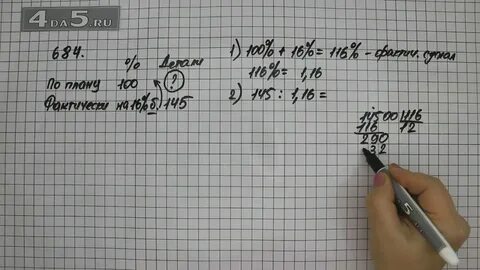 4ДА5.RU
684.
% Детали
По плану 100 ?
Фактически на 16% б. 145
1) 100% + 16% = 116% - фактич. сделал
116% = 1,16
2) 145 : 1,16 =
14500 116
116 12
290
232